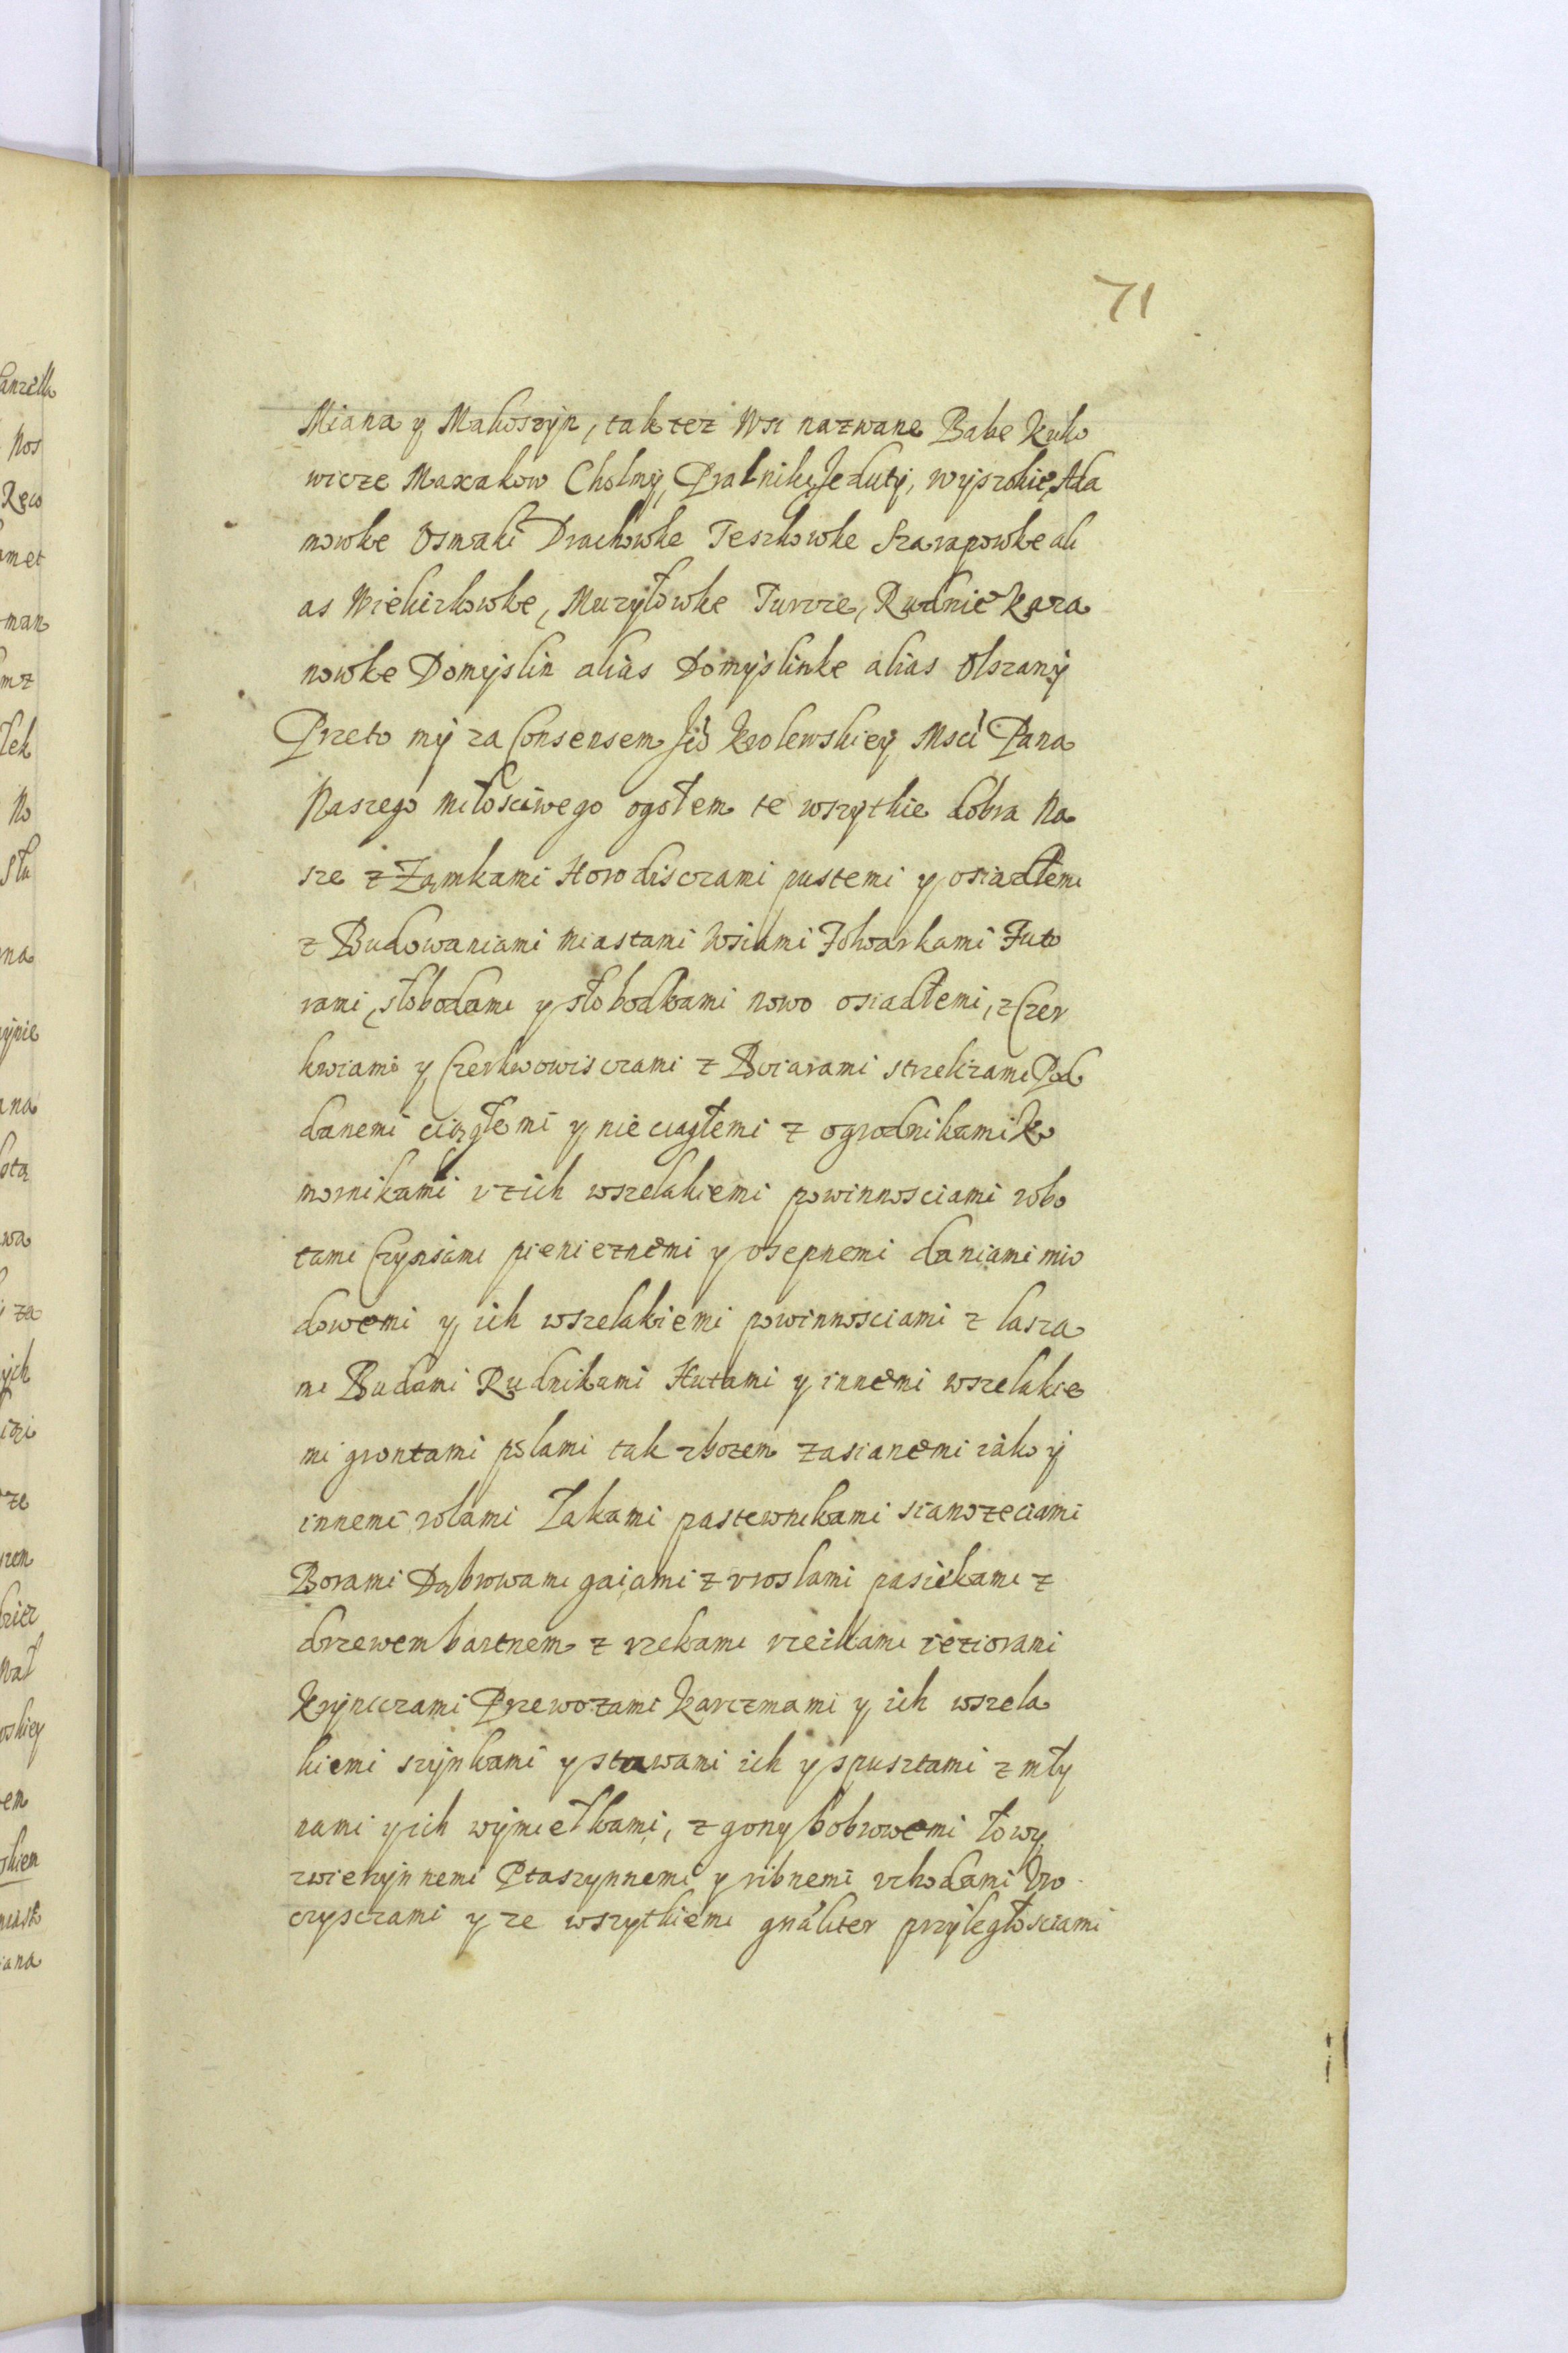 71
Miana y Makoszyn, tak tez Wsi nazwane Babe Kuko
wicze Maxakow Cholmy, Pralniki Jeduty, Wyszokie, Ada
mowke Osmaki Drachowke Teszkowke Szarapowke ali
as Wiekizkowke, Muzyłowke Turcze, Rudnie Kaza
nowke Domyslin alias Domyslinke alias Olszany
Przeto my za Consensem Jeo Krolewskiey Msci Pana
Naszego miłosciwego ogołem te wszytkie dobra Na
sze z Zamkami Horodisczami pustemi y osiadłemi
z Budowaniami Miastami Wsiami Folwarkami Futo
rami, słobodami y słobodkami nowo osiadłemi, z Czer
kwiami y Czerkwowisczami z Boiarami strzelcami Pod
danemi ciągłemi y nieciągłemi z ogrodnikami Ko
mornikami y z ich wszelakiemi powinnosciami robo
tami Czynsami pienieznemi y osepnemi daniami mio
dowemi y ich wszelakiemi powinnosciami z lasza
mi Budami Rudnikami Hutami y innemi wszelakie
mi grontami polami tak zbozem zasianemi iako y
innemi rolami Łakami pastewnikami sianozeciami
Borami Dąbrowami gaiami z vroslami pasiekami z
drzewem bartnem z rzekami rzeczkami ieziorami
Kryniczami Przewozami Karczmami y ich wszela
kiemi szynkami y stawami ich y spusztami z mły
nami y ich wymiełkami, z gony bobrowemi łowy
zwierzynnemi Ptaszynnemi y ribnemi vchodami Vro
czysczami y ze wszytkiemi gnaliter przyległosciami